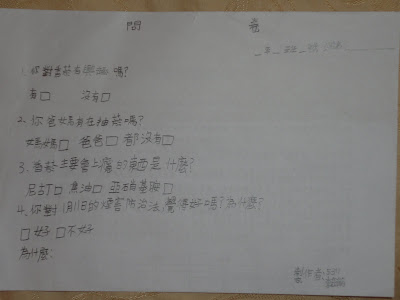 問 卷
年 班 號
1.你對香菸有興趣嗎?
有□ 沒有□
2.你爸媽有在抽菸嗎?
媽媽□ 爸爸□ 都沒有□
3.香菸主要會上癮的東西是什麼?
尼古丁□ 焦油□ 亞硝基胺□
4.你對1月11日的煙害防治法,覺得好嗎?為什麼?
□好 □不好
為什麼:
製作者: